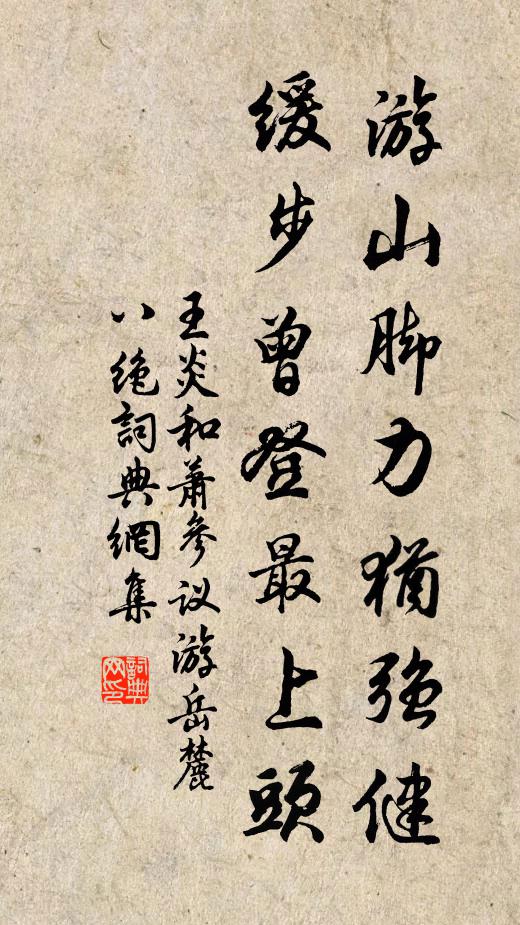 游山脚力犹强健
缓步曾登最上頭
王炎和萧參议游岳麓
八绝詞典網集
詞典网印